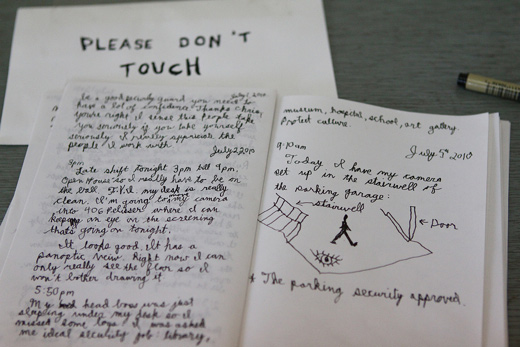 PLEASE DON'T
TOUCH
July 1, 2010
to be a good security guard you need to
have a lot of confidence. Thanks Chris,
you're right I sense that people take
you seriously if you take yourself
seriously. I really appreciate the
people I work with.
July 2, 2010
3pm
Late shift tonight 3pm till 9pm.
Open House so I really have to be on
the ball. I.V.C. my desk is really
clean. I'm going to my camera
into 906 where I can
keep an eye on the screening
that's going on tonight.
It looks good. It has a
panoptic view. Right now I can
only really see the floor so I
won't bother drawing it
5:50pm
My head boss was just
sleeping under my desk so I
missed some logs. I was asked
me ideal security job: library,
museum, hospital, school, art gallery.
Protect culture.
July 5th 2010
9:10am
Today I have my camera
set up in the stairwell of
the parking garage:
stairwell
Door
The parking security approved.